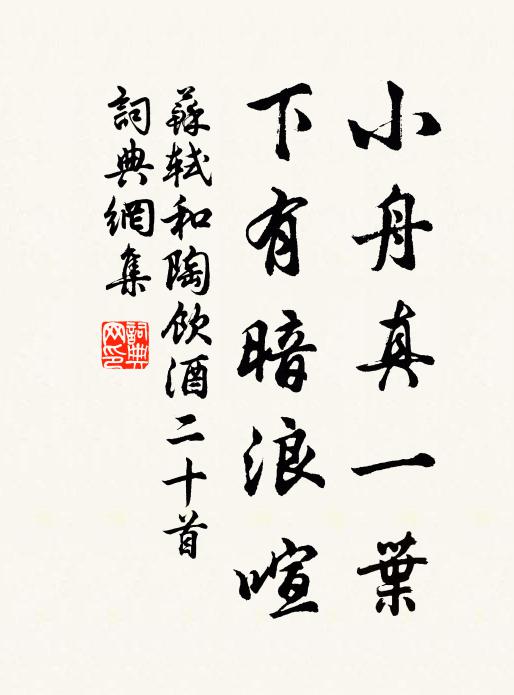 小舟真一葉
下有暗浪喧
蘇軾和陶飲酒二十首
詞典網集
詞典網印